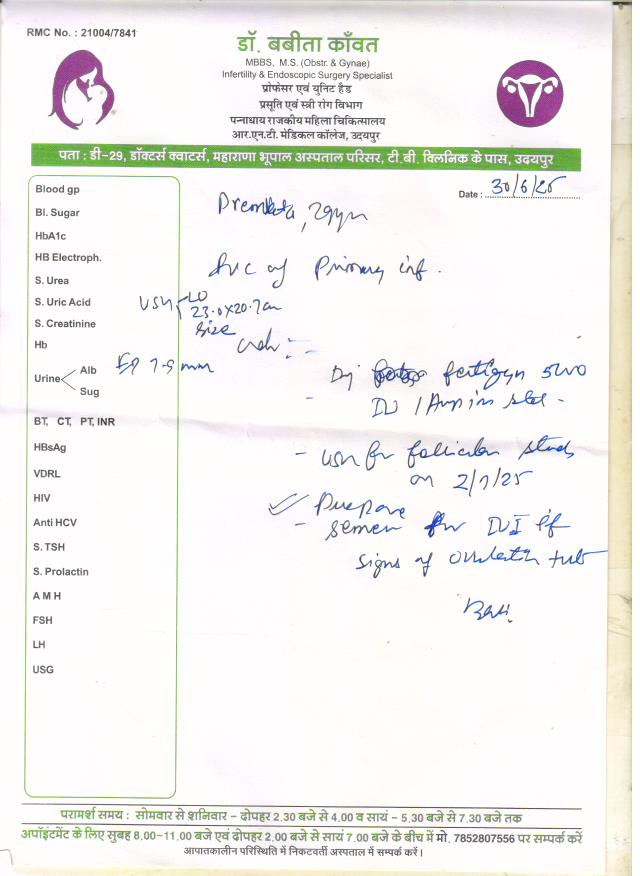 RMC No. : 21004/7841
डॉ. बबीता काँवत
MBBS, M.S. (Obstr. & Gynae)
Infertility & Endoscopic Surgery Specialist
प्रोफेसर एवं युनिट हैड
प्रसूति एवं स्त्री रोग विभाग
पन्नाधाय राजकीय महिला चिकित्सालय
आर.एन.टी. मेडिकल कॉलेज, उदयपुर
पता : डी-29, डॉक्टर्स क्वाटर्स, महाराणा भूपाल अस्पताल परिसर, टी.बी. क्लिनिक के पास, उदयपुर
Date : 30/6/25
Blood gp
Bl. Sugar
HbA1c
HB Electroph.
S. Urea
S. Uric Acid
S. Creatinine
Hb
Urine Alb
Sug
BT, CT, PT, INR
HBsAg
VDRL
HIV
Anti HCV
S. TSH
S. Prolactin
A M H
FSH
LH
USG
29yr
Primary inf.
23.0x20.7
size
mm
fertigyn 5000
1 Amp im stat.
- USG for follicular study
on 2/7/25
Prepare
- semen for IUI if
signs of
परामर्श समय : सोमवार से शनिवार - दोपहर 2.30 बजे से 4.00 व सायं - 5.30 बजे से 7.30 बजे तक
अपॉइंटमेंट के लिए सुबह 8.00-11.00 बजे एवं दोपहर 2.00 बजे से सायं 7.00 बजे के बीच में मो. 7852807556 पर सम्पर्क करें
आपातकालीन परिस्थिति में निकटवर्ती अस्पताल में सम्पर्क करें।